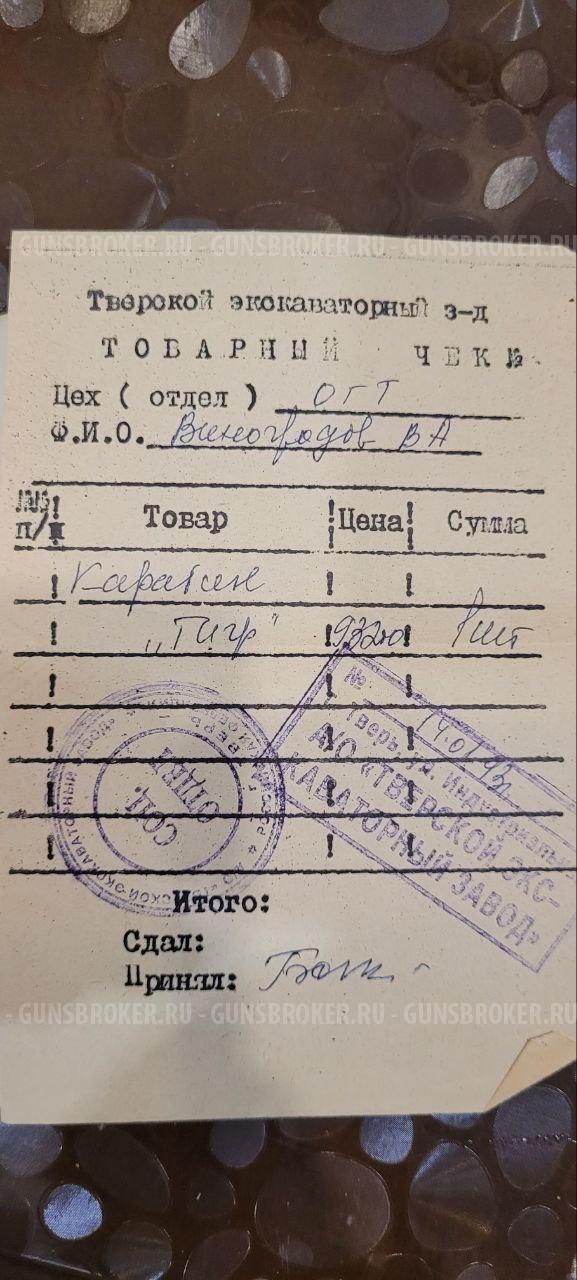 - GUNSBROKER.RU - GUNSBROKER.RU - GUNSBROKER.RU
Тверской экскаваторный з-д
ТОВАРНЫЙ ЧЕК №
Цех ( отдел ) ОГТ
Ф.И.О. Виноградов ВА
№№ п/п Товар Цена Сумма
Карабин
„Тигр" 9320 1 шт
№
Тверь, ул. Индустриальная
А/О «ТВЕРСКОЙ ЭКС-
КАВАТОРНЫЙ ЗАВОД»
СОЦ.
ОТДЕЛ
Итого:
Сдал:
Принял:
- GUNSBROKER.RU - GUNSBROKER.RU - GUNSBROKER.RU